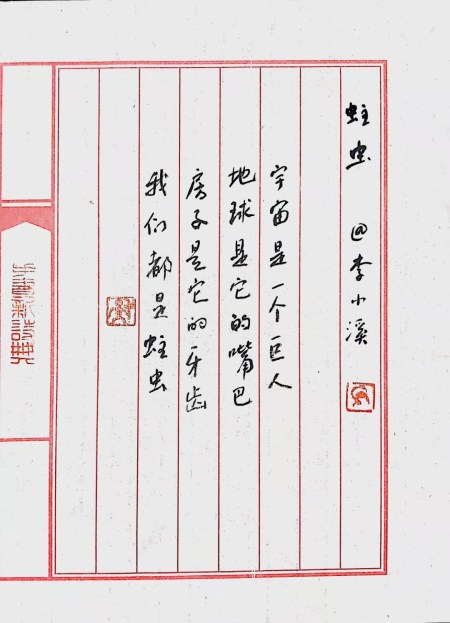 蛀虫 @李小溪
宇宙是一个巨人
地球是它的嘴巴
房子是它的牙齿
我们都是蛀虫